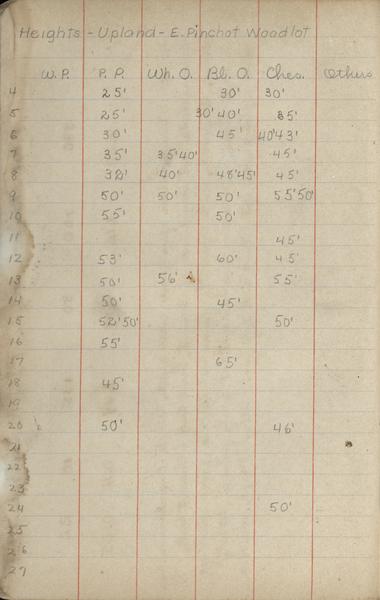 Heights - Upland - E. Pinchot Woodlot
W. P. P. P. Wh. O. Bl. O. Ches. Others
4 25' 30' 30'
5 25' 30' 40' 35'
6 30' 45' 40' 43'
7 35' 35' 40' 45'
8 40' 48' 45' 45'
9 50' 50' 50' 55' 50'
10 55' 50'
11 45'
12 53' 60' 45'
13 50' 56' 55'
14 50' 45'
15 52' 50' 50'
16 55'
17 65'
18 45'
19
20 50' 46'
21
22
23
24 50'
25
26
27